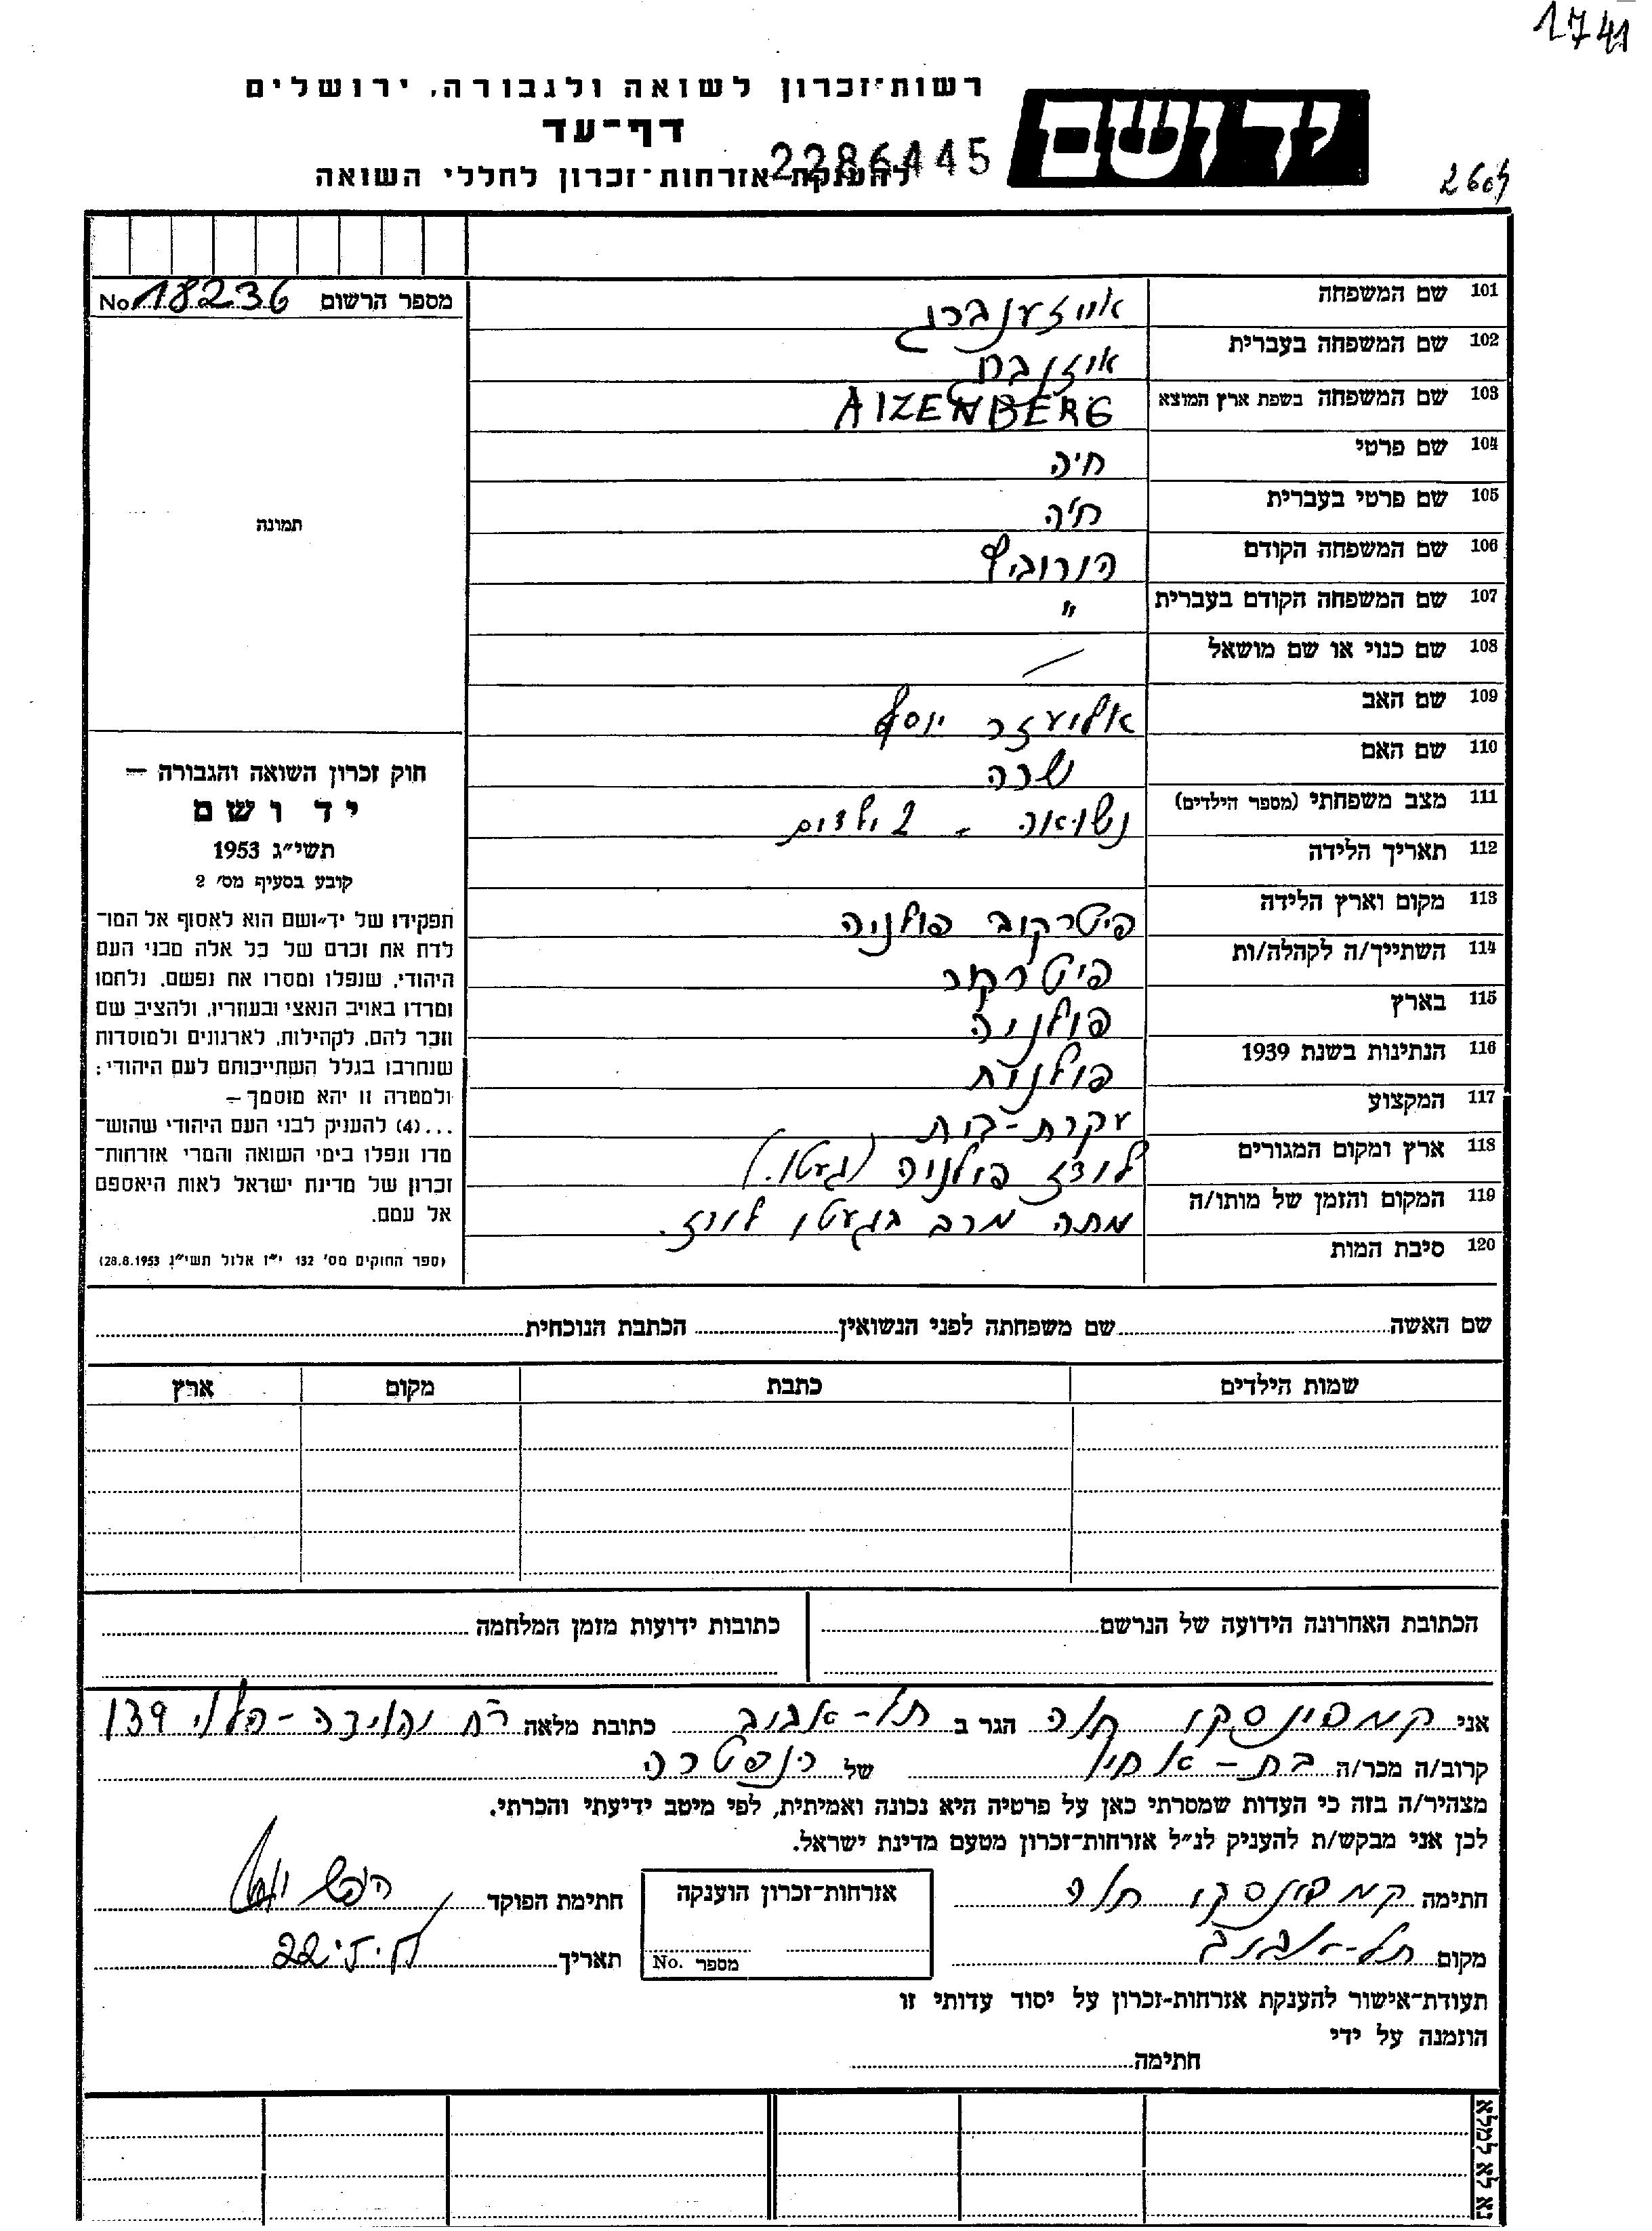 1741
רשות־זכרון לשואה ולגבורה, ירושלים
יד ושם
דף־עד
2286445
להענקת אזרחות־זכרון לחללי השואה
מספר הרשום No. 18236
101 שם המשפחה אייזענברג
102 שם המשפחה בעברית
103 שם המשפחה בשפת ארץ המוצא AIZENBERG
104 שם פרטי חיה
105 שם פרטי בעברית חיה
106 שם המשפחה הקודם הורוביץ
107 שם המשפחה הקודם בעברית "
108 שם כנוי או שם מושאל —
109 שם האב אליעזר יוסף
110 שם האם שרה
111 מצב משפחתי (מספר הילדים) נשואה - 2 ילדים
112 תאריך הלידה
113 מקום וארץ הלידה פיטרקוב פולניה
114 השתייך/ה לקהלה/ות
115 בארץ פולניה
116 הנתינות בשנת 1939 פולנית
117 המקצוע עקרת-בית
118 ארץ ומקום המגורים לודז פולניה (געטו.)
119 המקום והזמן של מותו/ה מתה מרב בגעטו לודז.
120 סיבת המות
תמונה
חוק זכרון השואה והגבורה —
יד ושם
תשי״ג 1953
קובע בסעיף מס׳ 2
תפקידו של יד־ושם הוא לאסוף אל המו־
לדת את זכרם של כל אלה מבני העם
היהודי, שנפלו ומסרו את נפשם, נלחמו
ומרדו באויב הנאצי ובעוזריו, ולהציב שם
וזכר להם, לקהילות, לארגונים ולמוסדות
שנחרבו בגלל השתייכותם לעם היהודי;
ולמטרה זו יהא מוסמך —
...(4) להעניק לבני העם היהודי שהוש־
מדו ונפלו בימי השואה והמרי אזרחות־
זכרון של מדינת ישראל לאות היאספם
אל עמם.
(ספר החוקים מס׳ 132 י״ז אלול תשי״ג 28.8.1953)
שם האשה שם משפחתה לפני הנשואין הכתבת הנוכחית
שמות הילדים כתבת מקום ארץ
הכתובת האחרונה הידועה של הנרשם כתובות ידועות מזמן המלחמה
אני קמפינסקי חלה הגר ב תל-אביב כתובת מלאה רח יהודה-הלוי 139
קרוב/ה מכר/ה בת-אחי של הנפטרה
מצהיר/ה בזה כי העדות שמסרתי כאן על פרטיה היא נכונה ואמיתית, לפי מיטב ידיעתי והכרתי.
לכן אני מבקש/ת להעניק לנ״ל אזרחות־זכרון מטעם מדינת ישראל.
חתימה קמפינסקי חלה אזרחות־זכרון הוענקה חתימת הפוקד
מקום תל-אביב מספר No. תאריך
תעודת־אישור להענקת אזרחות-זכרון על יסוד עדותי זו
הוזמנה על ידי
חתימה
נא לא למלא